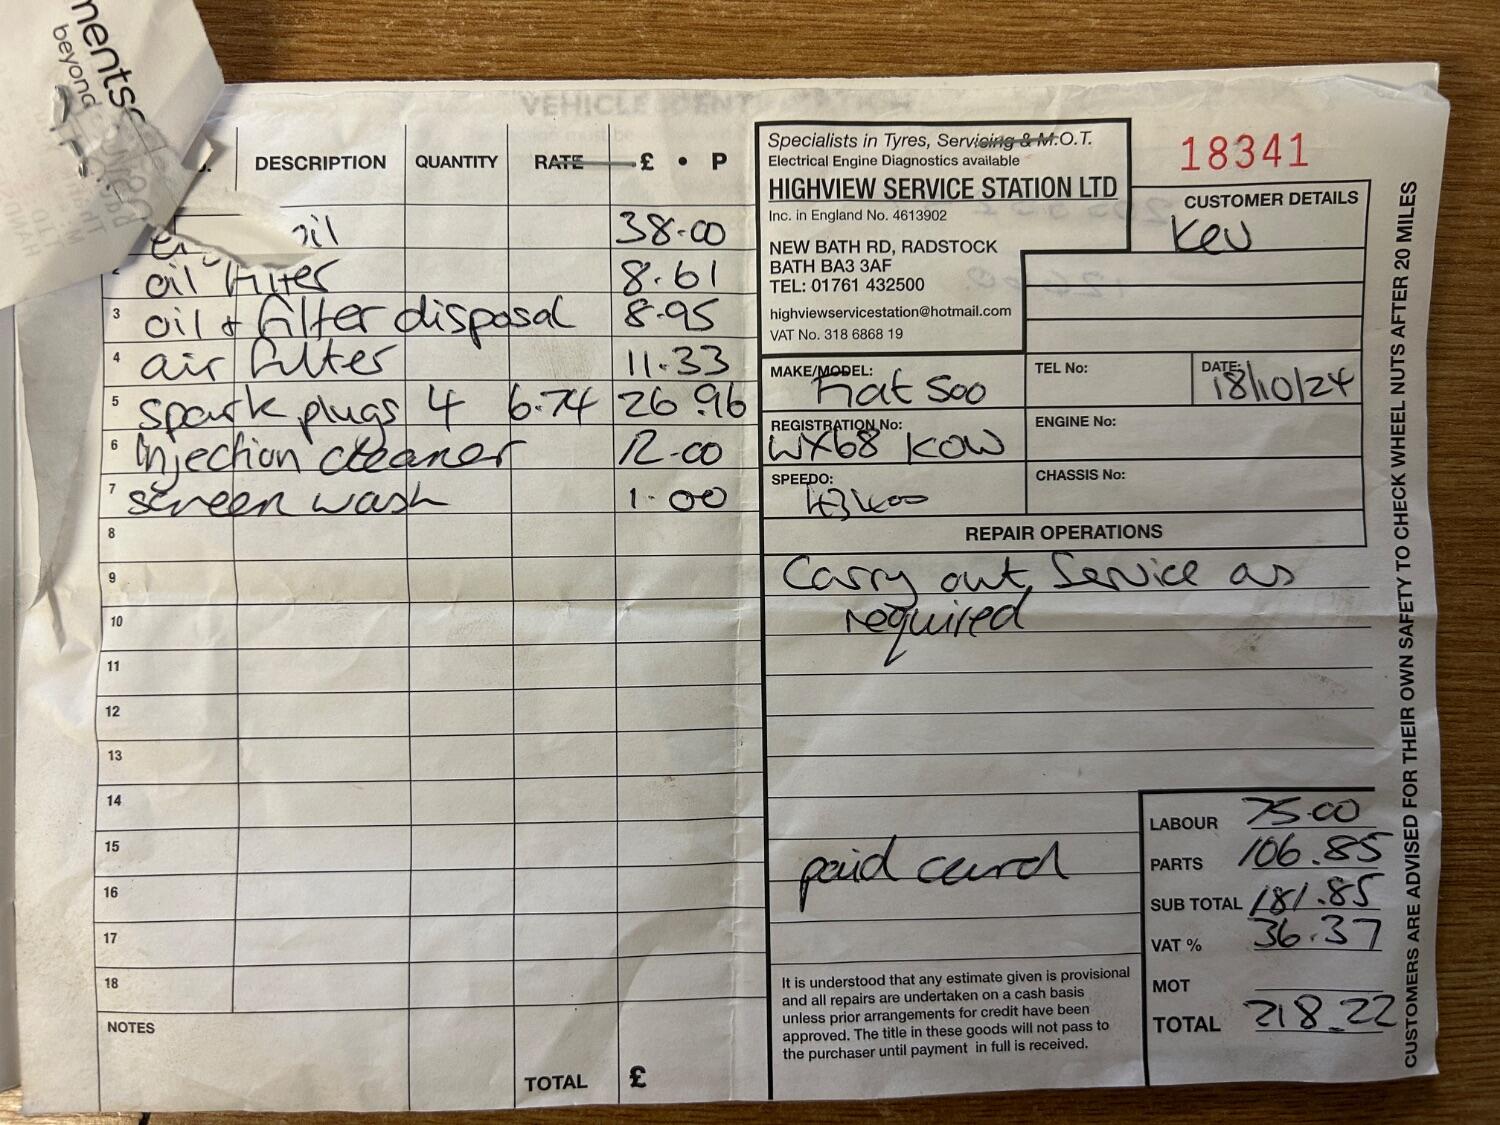 mentsc
beyond
DESCRIPTION QUANTITY RATE £ • P
oil 38.00
2 oil filter 8.61
3 oil + filter disposal 8.95
4 air filter 11.33
5 spark plugs 4 6.74 26.96
6 Injection cleaner 12.00
7 screen wash 1.00
8
9
10
11
12
13
14
15
16
17
18
NOTES
TOTAL £
Specialists in Tyres, Servicing & M.O.T.
Electrical Engine Diagnostics available
HIGHVIEW SERVICE STATION LTD
Inc. in England No. 4613902
NEW BATH RD, RADSTOCK
BATH BA3 3AF
TEL: 01761 432500
highviewservicestation@hotmail.com
VAT No. 318 6868 19
18341
CUSTOMER DETAILS
Kev
MAKE/MODEL: Fiat 500
TEL No:
DATE: 18/10/24
REGISTRATION No: WX68 KOW
ENGINE No:
SPEEDO:
CHASSIS No:
REPAIR OPERATIONS
Carry out Service as
required
paid card
LABOUR 75.00
PARTS 106.85
SUB TOTAL 181.85
VAT % 36.37
MOT
TOTAL 218.22
It is understood that any estimate given is provisional
and all repairs are undertaken on a cash basis
unless prior arrangements for credit have been
approved. The title in these goods will not pass to
the purchaser until payment in full is received.
CUSTOMERS ARE ADVISED FOR THEIR OWN SAFETY TO CHECK WHEEL NUTS AFTER 20 MILES